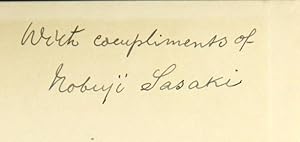 With compliments of
Nobuji Sasaki